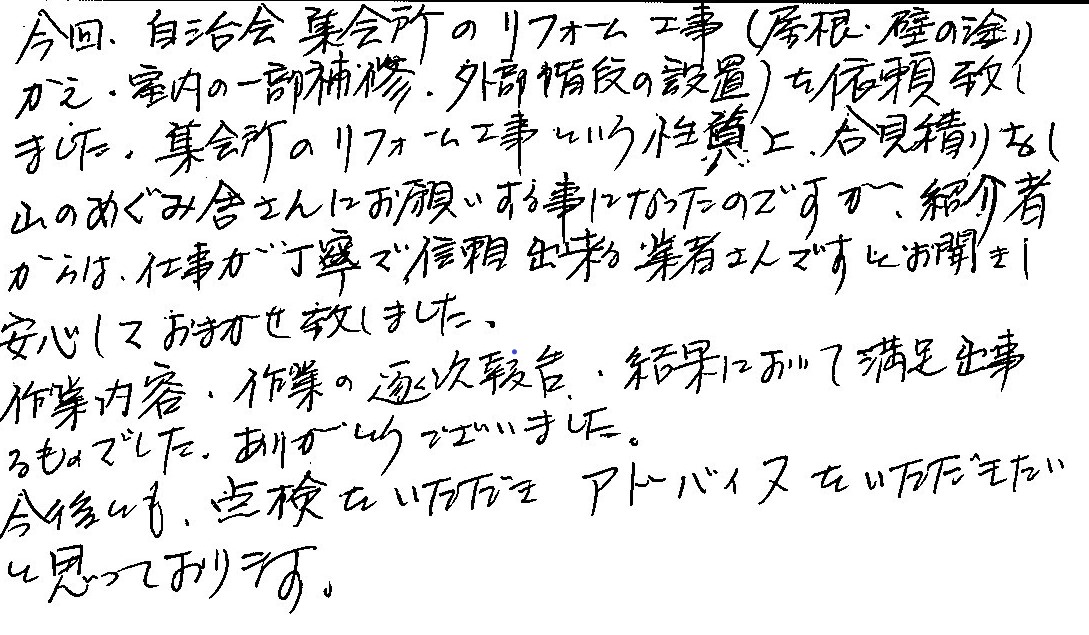 今回、自治会集会所のリフォーム工事(屋根・壁の塗り
かえ・室内の一部補修、外部階段の設置)を依頼致し
ました。集会所のリフォーム工事という性質上、合見積りなし
山のめぐみ舎さんにお願いする事になったのですが、紹介者
からは、仕事が丁寧で、信頼出来る業者さんですとお聞きし
安心しておまかせ致しました。
作業内容、作業の逐次報告、結果において満足出事
るものでした。ありがとうございました。
今後とも、点検をいただき アドバイスをいただきたい
と思っております。